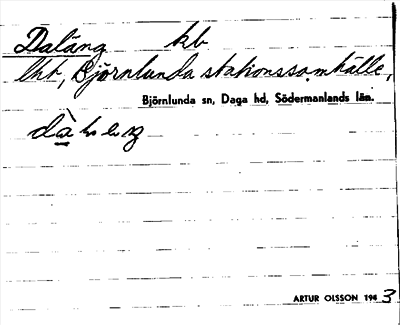 Daläng kb
lht, Björnlunda stationssamhälle,
Björnlunda sn, Daga hd, Södermanlands län.
ARTUR OLSSON 1943